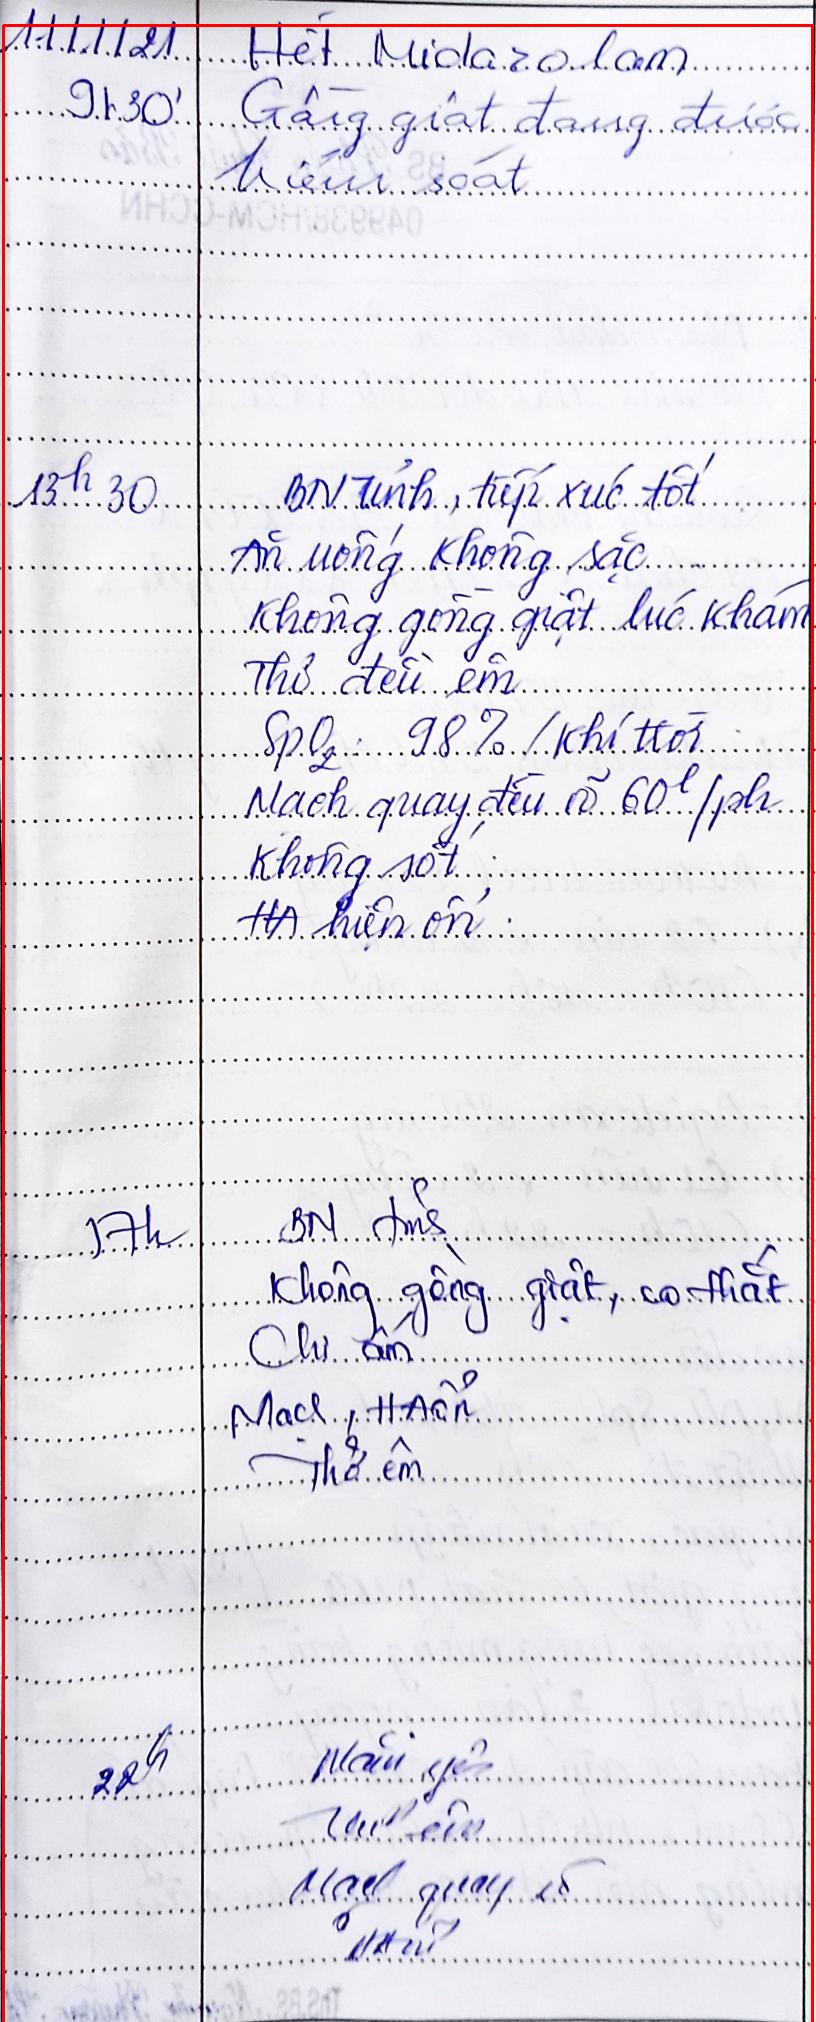 11/1/21 Hết Midazolam
9h30' Gồng giật đang được
kiểm soát
13h30 BN tỉnh, tiếp xúc tốt
Ăn uống không sặc
Không gồng giật lúc khám
Thở đều êm
SpO2: 98% / khí trời
Mạch quay đều rõ 60l/ph
Không sốt
HA hiện ổn
17h BN tỉnh
Không gồng giật, co thắt
Chi ấm
Mạch, HA ổn
Thở êm
22h Nằm yên
Thở êm
Mạch quay rõ
HA